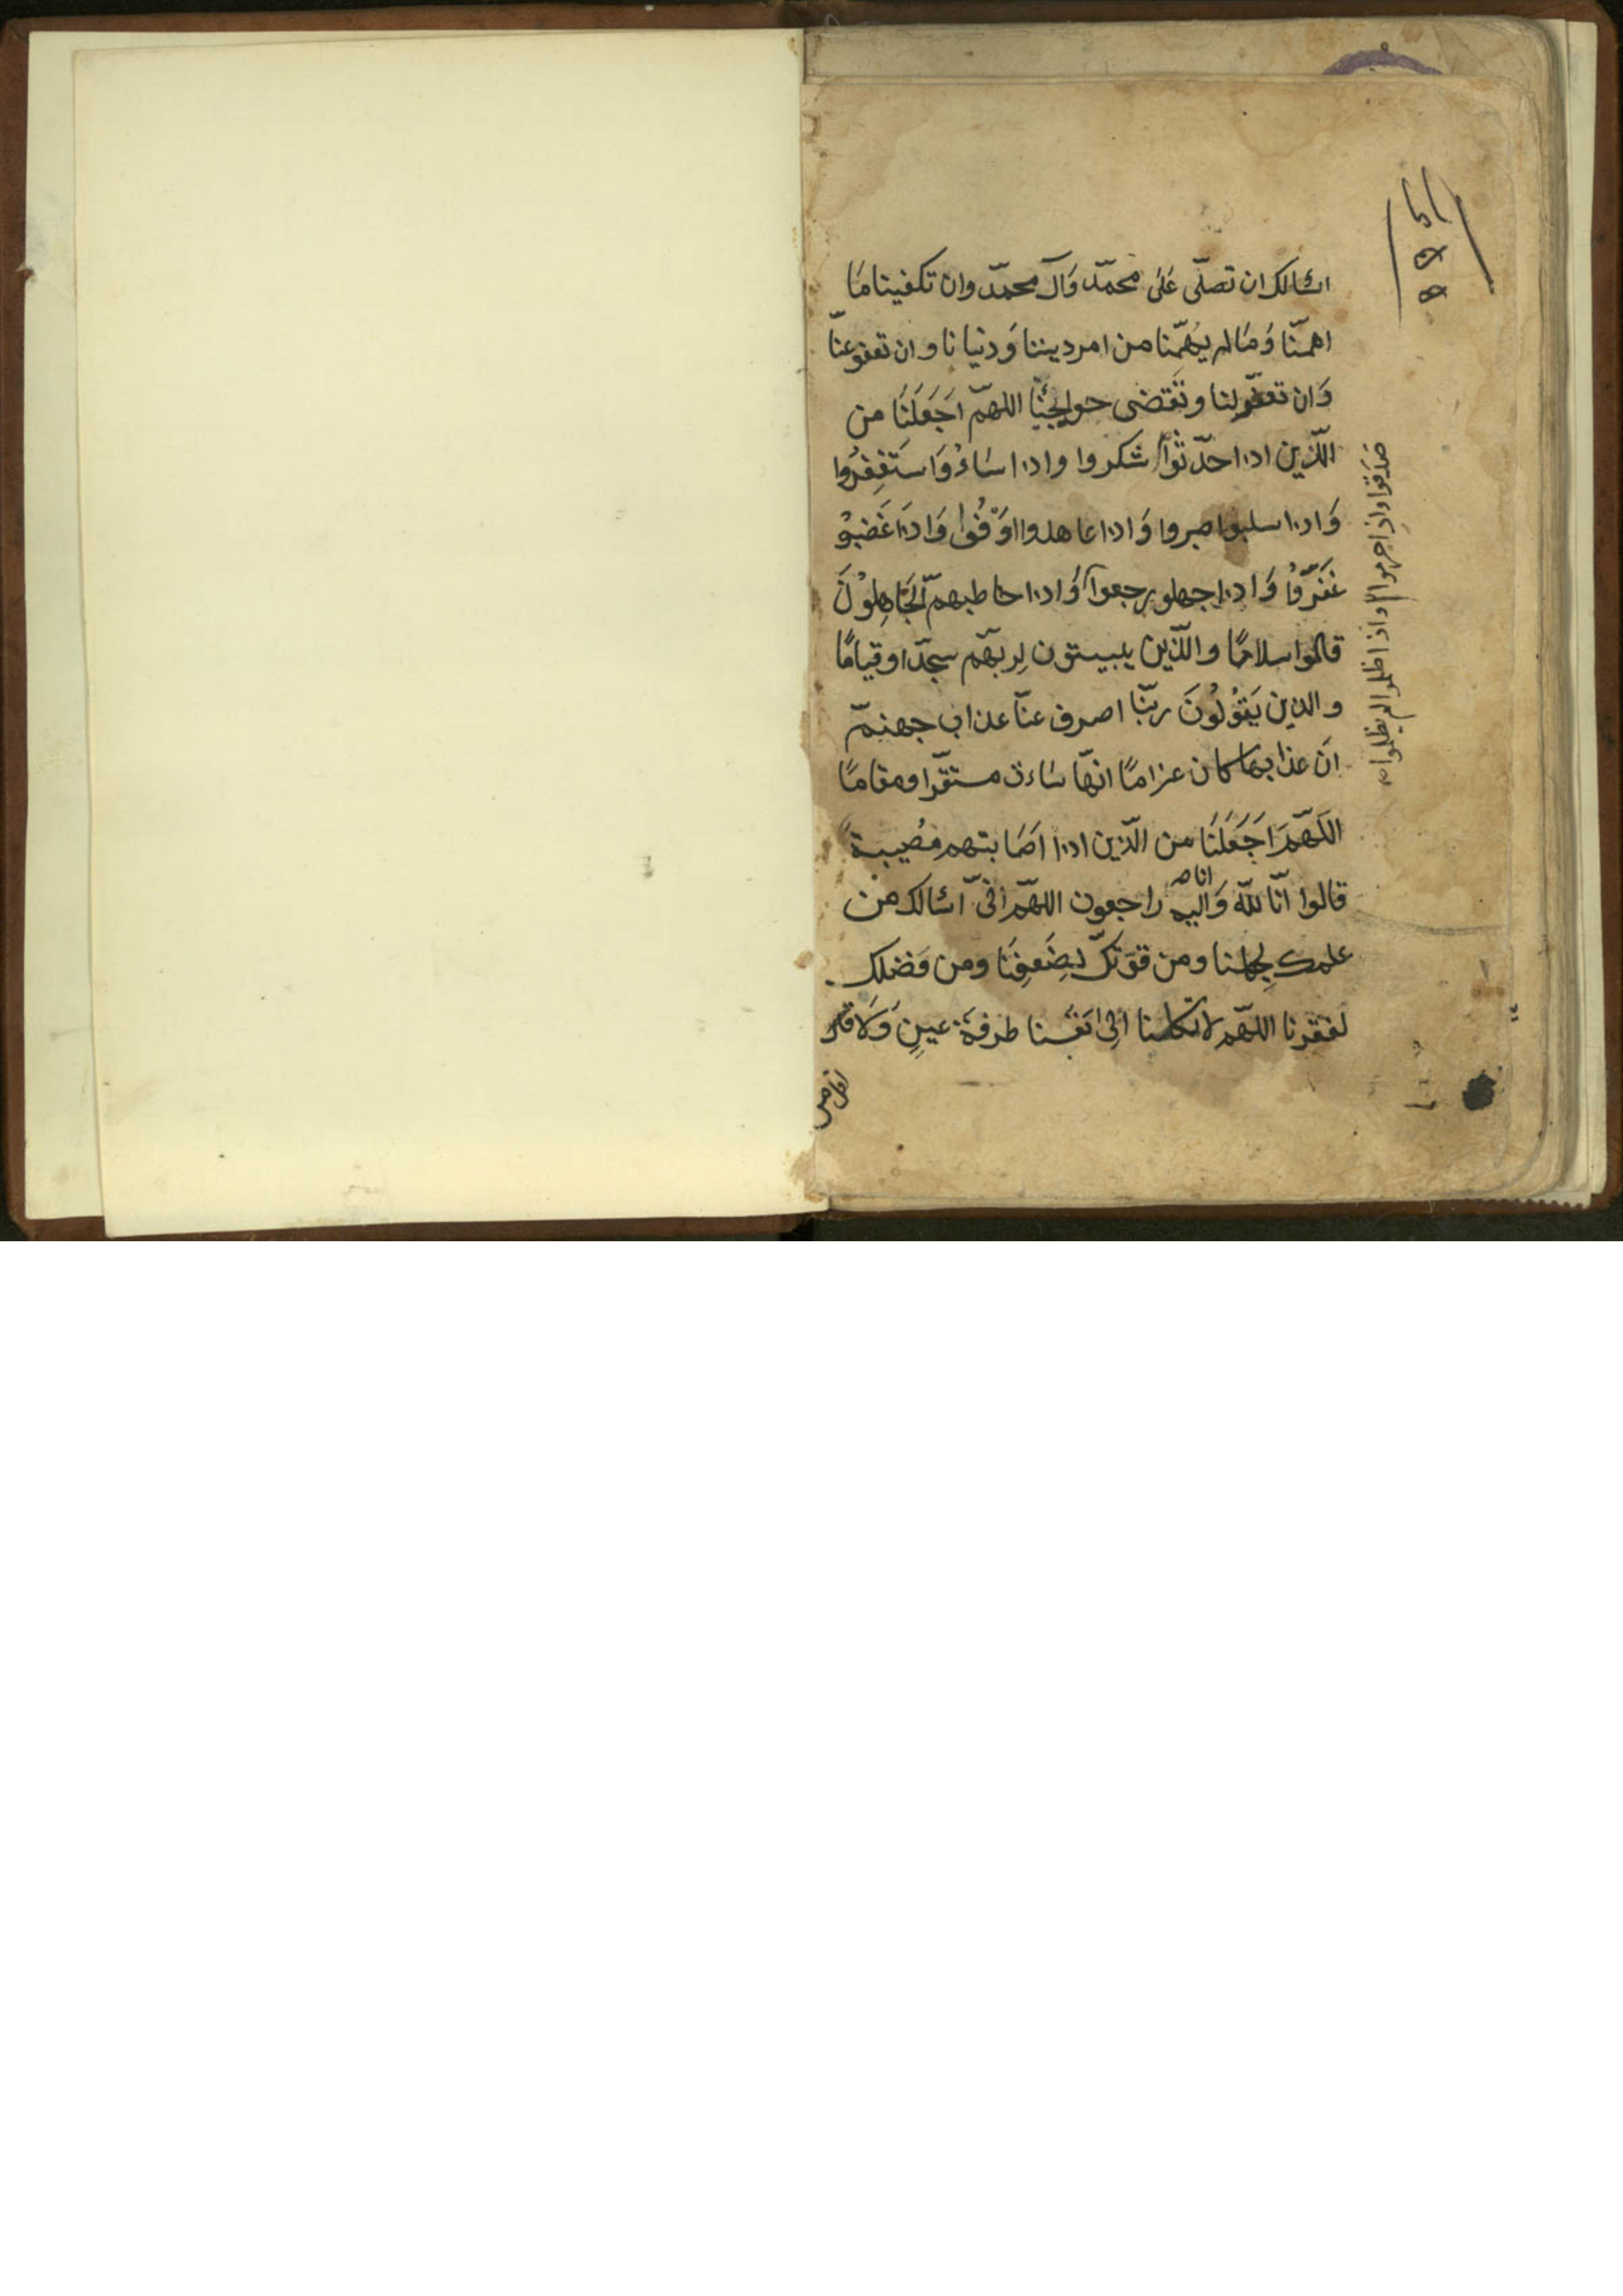 اسئالك ان تصلّى عَلى محمّد وَآل محمّد وان تكفينا مَا
اهمّنا وَمَا لم يُهمّنا من امر ديننا وَدنيانا وان تعفو عنّا
وَان تغفر لنا وتَقضى حوايجنَا اللهمّ اجَعَلنَا من
الّذين اذا حدّثوا شكروا واذا اسَاءُوَا استَغفِرُوا
وَاذا سلبوا صبروا وَاذا عاهدوا اوَفُوا وَاذَا غَضبُو
غَفَرُوا وَاذا جهلو رجعوا وَاذا خاطبهمّ الجَاهِلوُنَ
قالوا سلامًا والّذين يبيتون لِربّهم سجّدا وقيامًا
والذين يَقوُلُونَ ربّنا اصرف عنّا عذاب جهنمّ
انَ عذابها كان غرامًا انهّا سَاءت مستقرّا ومقامًا
اللَهمّ اجَعَلنَا من الّذين اذا اصَابتهم مُصيبة
قالوا انّا للّه وَاليه راجعون اللهمّ انىّ اسَئالك من
انا صح
علمك لجهلنا ومن قوّتك لِضَعفِنَا ومن فَضلك
لفقرنا اللهّم لا تكلنا الِى انَفُسنا طرفةَ عينٍ وَلا اقل
صَدَقوا واذا حرموا واذا ظلموا لم يظلموا صح